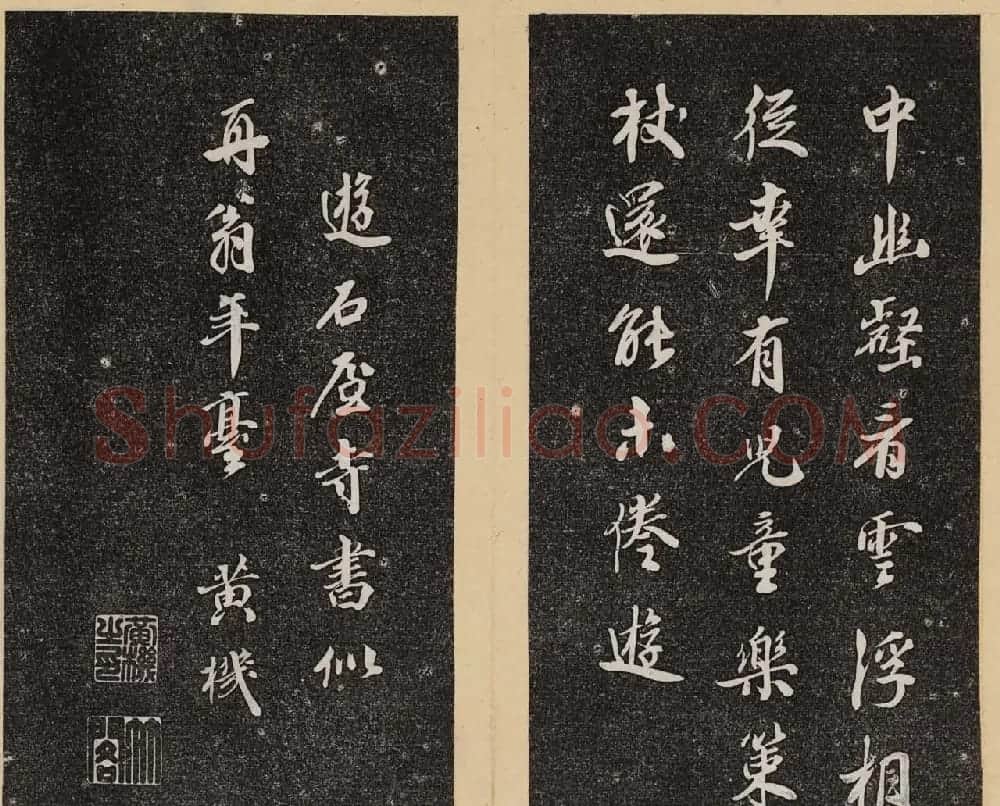 中幽壑看雲浮相
從幸有兒童樂策
杖還能不倦遊
遊石屋寺書似
再翁年臺 黄機
黄機之印
Shufaziliao.COM